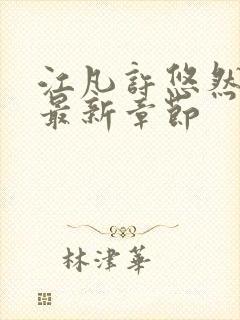 江凡許悠然
最新章節
林津華